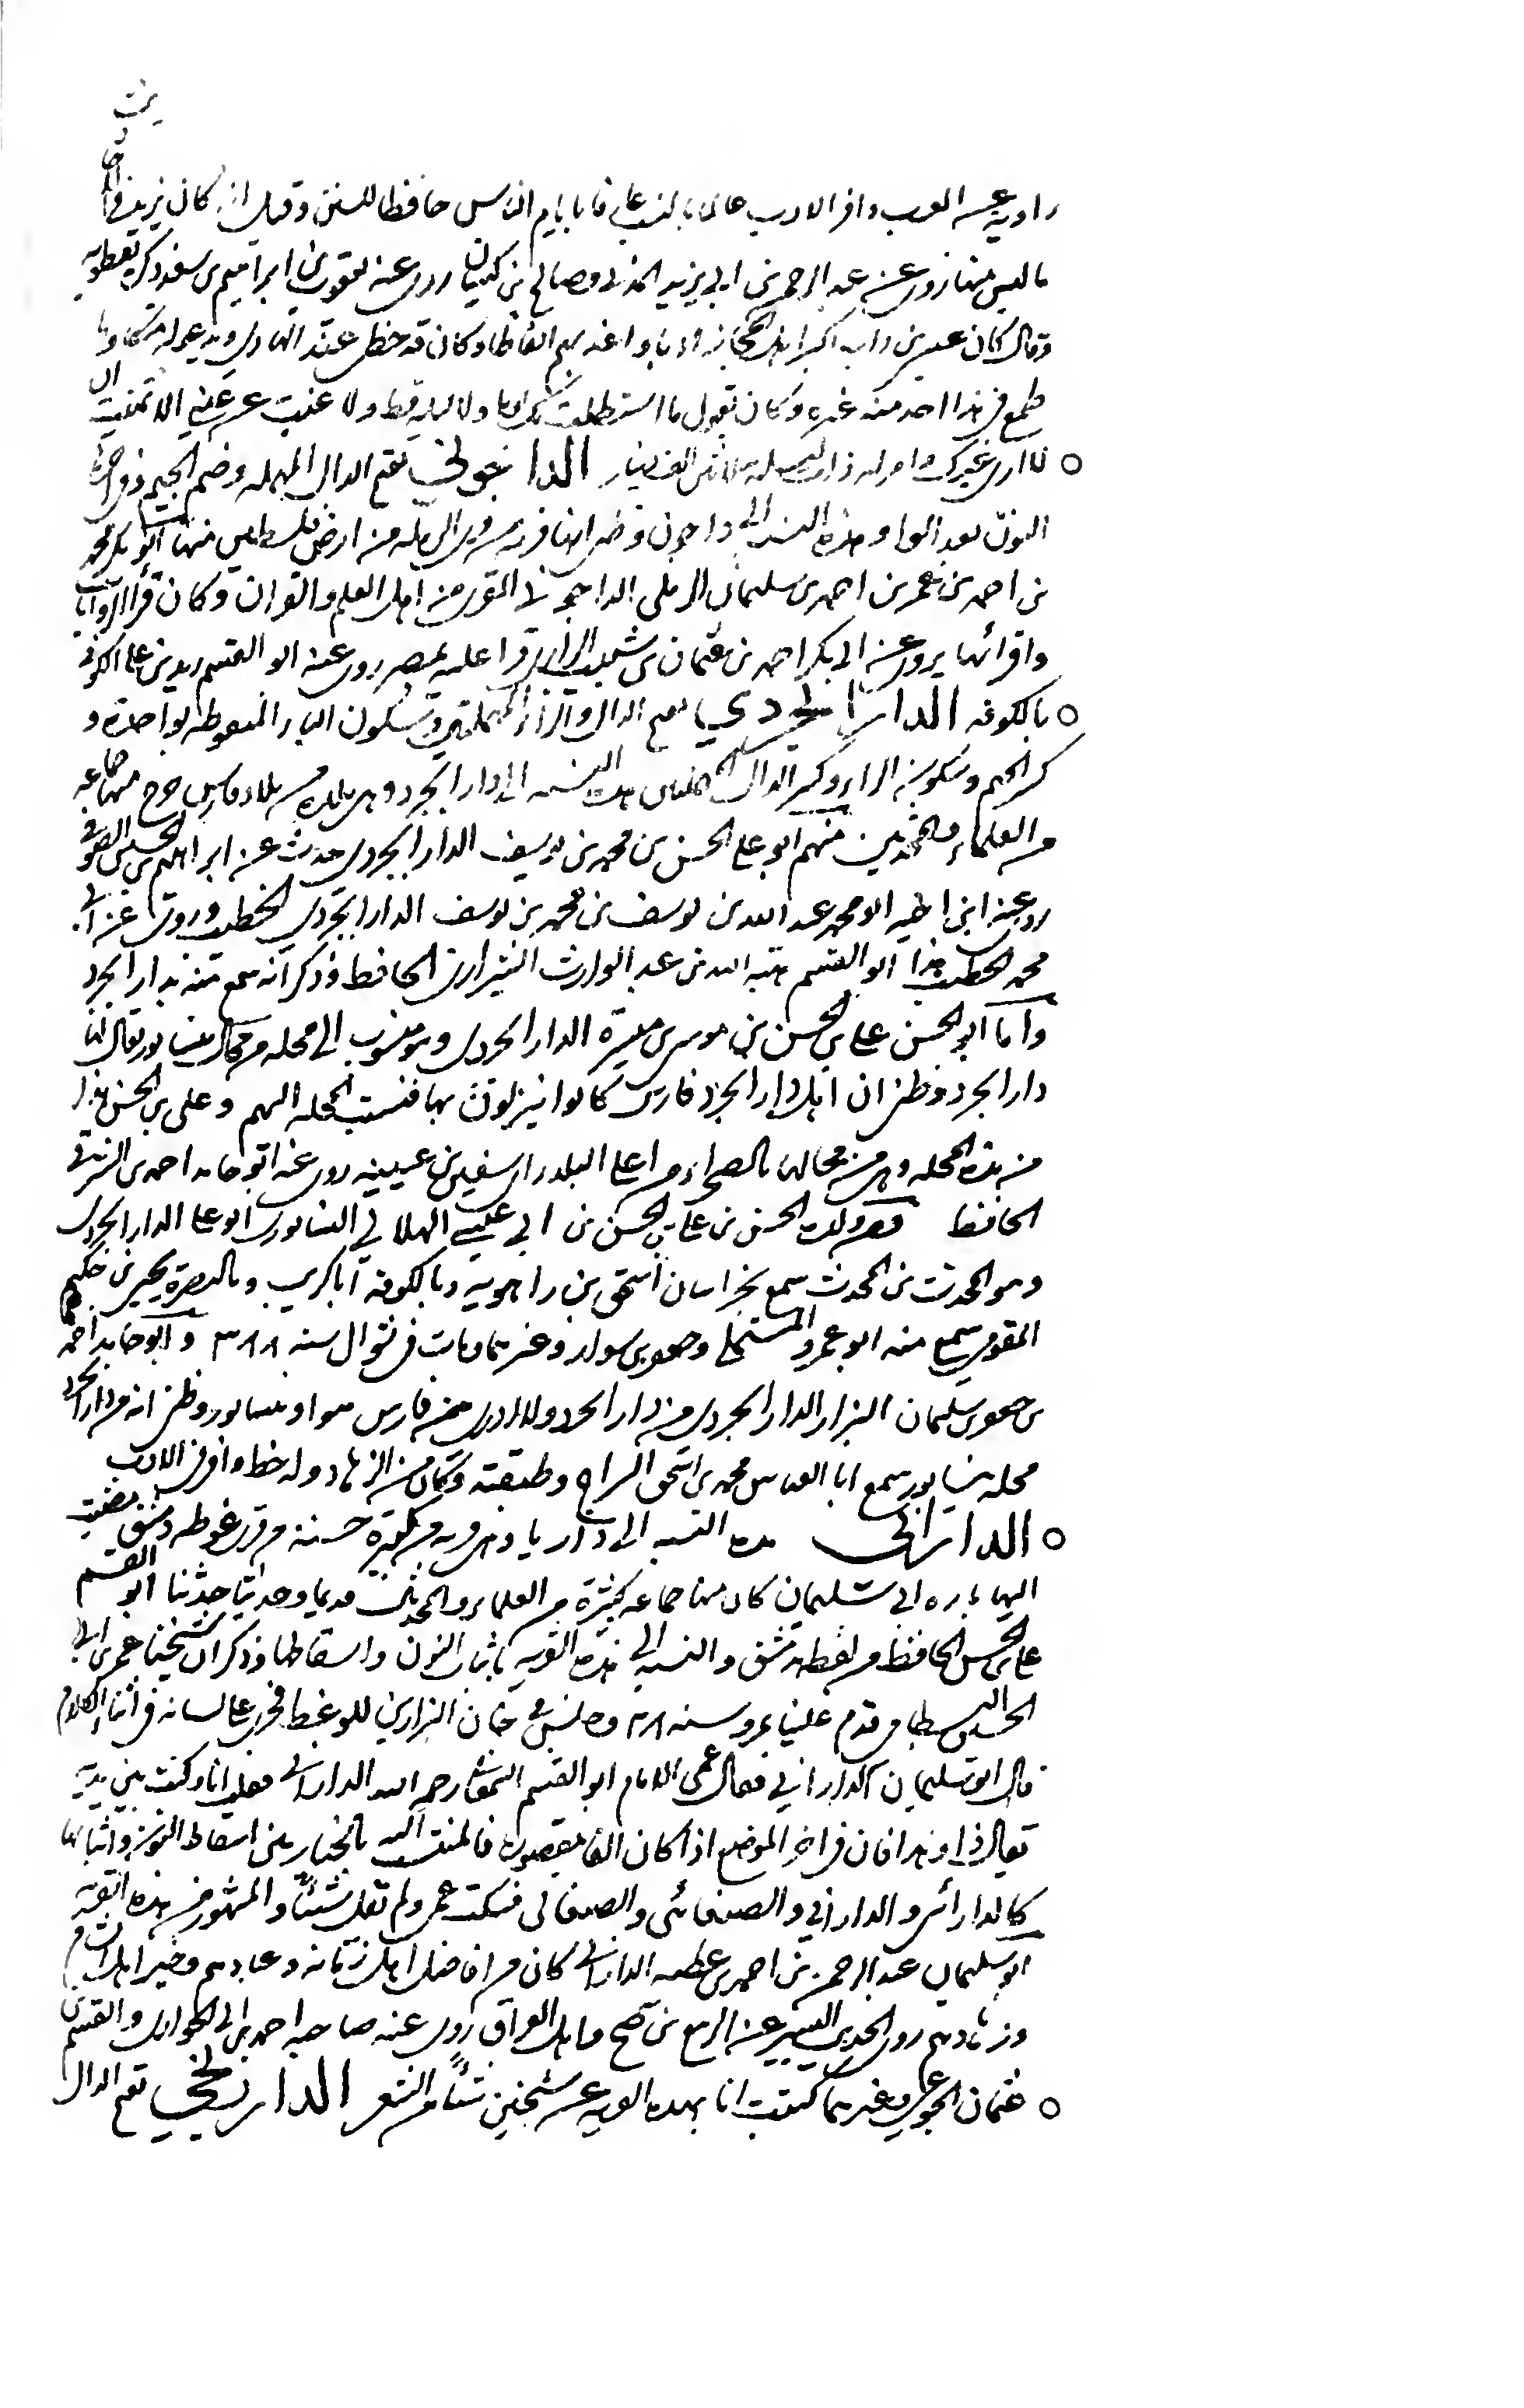 راويه عن العرب وافر الادب عالما بالنسب عارفا بايام الناس حافظا للسنن وقيل انه كان يزيد في
ما ليس منها روى عن عبد الرحمن بن ابي يزيد المدنى وصالح بن كيسان روى عنه يعقوب بن ابراهيم بن سعد وذكره نفطويه
وقال كان عيسى بن داب اكثر اهل الحجاز ادبا واعذبهم الفاظا وكان قد حظى عند الهادى ويدعو له متكا وما
طمع فى هذا احد منه غيره وكان يقول ما استطلت بك يوما ولا ليله قط ولا غبت عن عينى الا تمنيت ان
○ لا ارى غيرك وامر له ذات ليله بثلاثين الف دينار الداجوني بفتح الدال المهمله وضم الجيم وفى اخره
النون بعد الواو هذه النسبه الى داجون وظنى انها قريه من قرى الرمله من ارض فلسطين منها ابو بكر محمد
بن احمد بن عمر بن احمد بن سليمان الرملى الداجونى المقرى من اهل العلم والقران وكان قرا الروايات
واقرائها يروى عن ابى بكر احمد بن عثمان بن شبيب الرازى قرا عليه بمصر روى عنه ابو القسم زيد بن على الكوفى
○ بالكوفه الدارابجردي بفتح الدال والراء المهملتين وسكون الباء المنقوطه بواحده و
كسر الجيم وسكون الراء وكسر الدال المهملتين هذه النسبه الى دارابجرد وهى بلده من بلاد فارس خرج منها جماعه
من العلماء والمحدثين منهم ابو على الحسن بن محمد بن يوسف الدارابجردى حدث عن ابراهيم بن الحسين الصوفى
روى عنه ابن اخيه ابو محمد عبد الله بن يوسف بن محمد بن يوسف الدارابجردى الخطيب وروى عن ابى
محمد الخطيب هذا ابو القسم هبه الله بن عبد الوارث الشيرازى الحافظ وذكر انه سمع منه بدارابجرد
واما ابو الحسن على بن الحسن بن موسى بن ميسرة الدارابجردى وهو منسوب الى محله من محال نيسابور يقال لها
دارابجرد وظنى ان اهل دارابجرد فارس كانوا ينزلون بها فنسبت المحله اليهم وعلى بن الحسن هذا
من هذه المحله وهى من محالها بالصحراء من اعلى البلد راى سفيان بن عيينه روى عنه ابو حامد احمد بن الشرقى
الحافظ وولده الحسن بن على بن الحسن بن ابي عيسى الهلالي النيسابورى ابو على الدارابجردى
وهو المحدث بن المحدث سمع بخراسان اسحق بن راهويه وبالكوفه ابا كريب وبالبصرة يحيى بن حكيم
المقوم سمع منه ابو عمرو المستملى وجعفر بن سوار وغيرهما ومات فى شوال سنه ٢٨٨ وابو حامد احمد
بن جعفر بن سليمان البزار الدارابجردى من دارابجرد ولا ادرى من فارس هو او نيسابور وظنى انه من دارابجرد
محله نيسابور سمع ابا العباس محمد بن اسحق السراج وطبقته وكان من الزهاد وله خط وافر فى الادب
○ الداراني هذه النسبه الى داريا وهى قريه كبيرة حسنه من قرى غوطه دمشق مضيت
اليها لزياره ابى سليمان كان منها جماعه كثيرة من العلماء والمحدثين قديما وحديثا حدثنا ابو القسم
على بن الحسن الحافظ من لفظه بدمشق والنسبه الى هذه القريه باثبات النون واسقاطها وذكر ان شيخنا عمر بن ابى
الحسن البسطامى قدم علينا بمرو سنه وجلس فى خان البزازين للوعظ فجرى على لسانه فى اثناء الكلام
قال ابو سليمان الدارانى فقال عمى الامام ابو القسم السمعانى رحمه الله الدارانى فقلت انا وكنت بين يديه
يقال ذا وهذا فان فى اخر الموضع اذا كان الف مقصوره فالمنتسب اليه بالخيار بين اسقاط النون واثباتها
كالدارائى والدارانى والصنعائى والصنعانى فسكت عمى ولم يقل شيئا والمشهور من هذه القريه
ابو سليمان عبد الرحمن بن احمد بن عطيه الدارانى كان من افاضل اهل زمانه وعبادهم وخير اهل الشام
وزهادهم روى الحديث اليسير عن الربيع بن صبح واهل العراق روى عنه صاحبه احمد بن ابى الحوارى والقسم بن
○ عثمان الجوعى وغيرهما كتبت انا بهذه القريه عن شيخين شيئا من الشعر الداربخي بفتح الدال